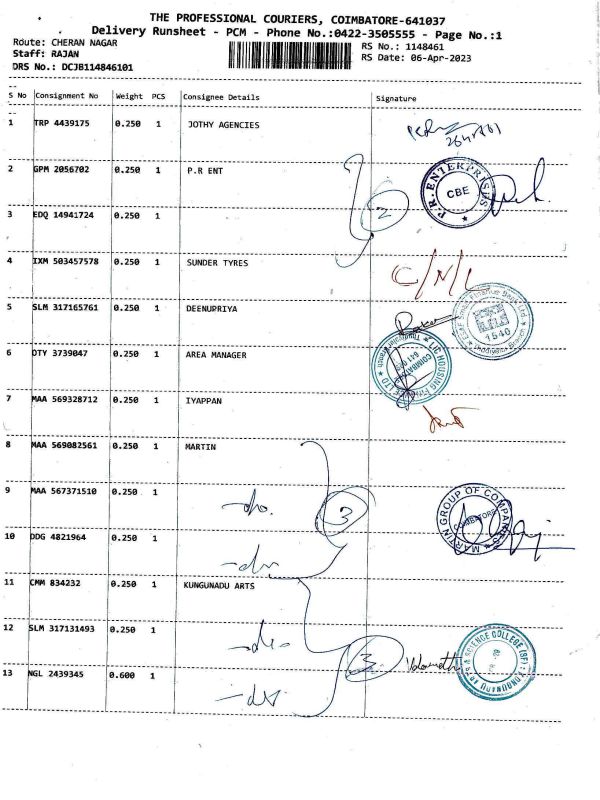 THE PROFESSIONAL COURIERS, COIMBATORE-641037
Delivery Runsheet - PCM - Phone No.:0422-3505555 - Page No.:1
Route: CHERAN NAGAR
RS No.: 1148461
Staff: RAJAN
RS Date: 06-Apr-2023
DRS No.: DCJB114846101
S No Consignment No Weight PCS Consignee Details Signature
1 TRP 4439175 0.250 1 JOTHY AGENCIES
2 GPM 2056702 0.250 1 P.R ENT
P.R. ENTERPRISES
CBE
2
3 EDQ 14941724 0.250 1
4 IXM 503457578 0.250 1 SUNDER TYRES
C/N/L
5 SLM 317165761 0.250 1 DEENUPRIYA
1540
6 OTY 3739047 0.250 1 AREA MANAGER
LIC HOUSING
7 MAA 569328712 0.250 1 IYAPPAN
8 MAA 569082561 0.250 1 MARTIN
9 MAA 567371510 0.250 1
-do.
3
MARTIN GROUP OF COMPANIES
COIMBATORE
10 DDG 4821964 0.250 1
11 CMM 834232 0.250 1 KUNGUNADU ARTS
12 SLM 317131493 0.250 1
3
& SCIENCE COLLEGE
13 NGL 2439345 0.600 1